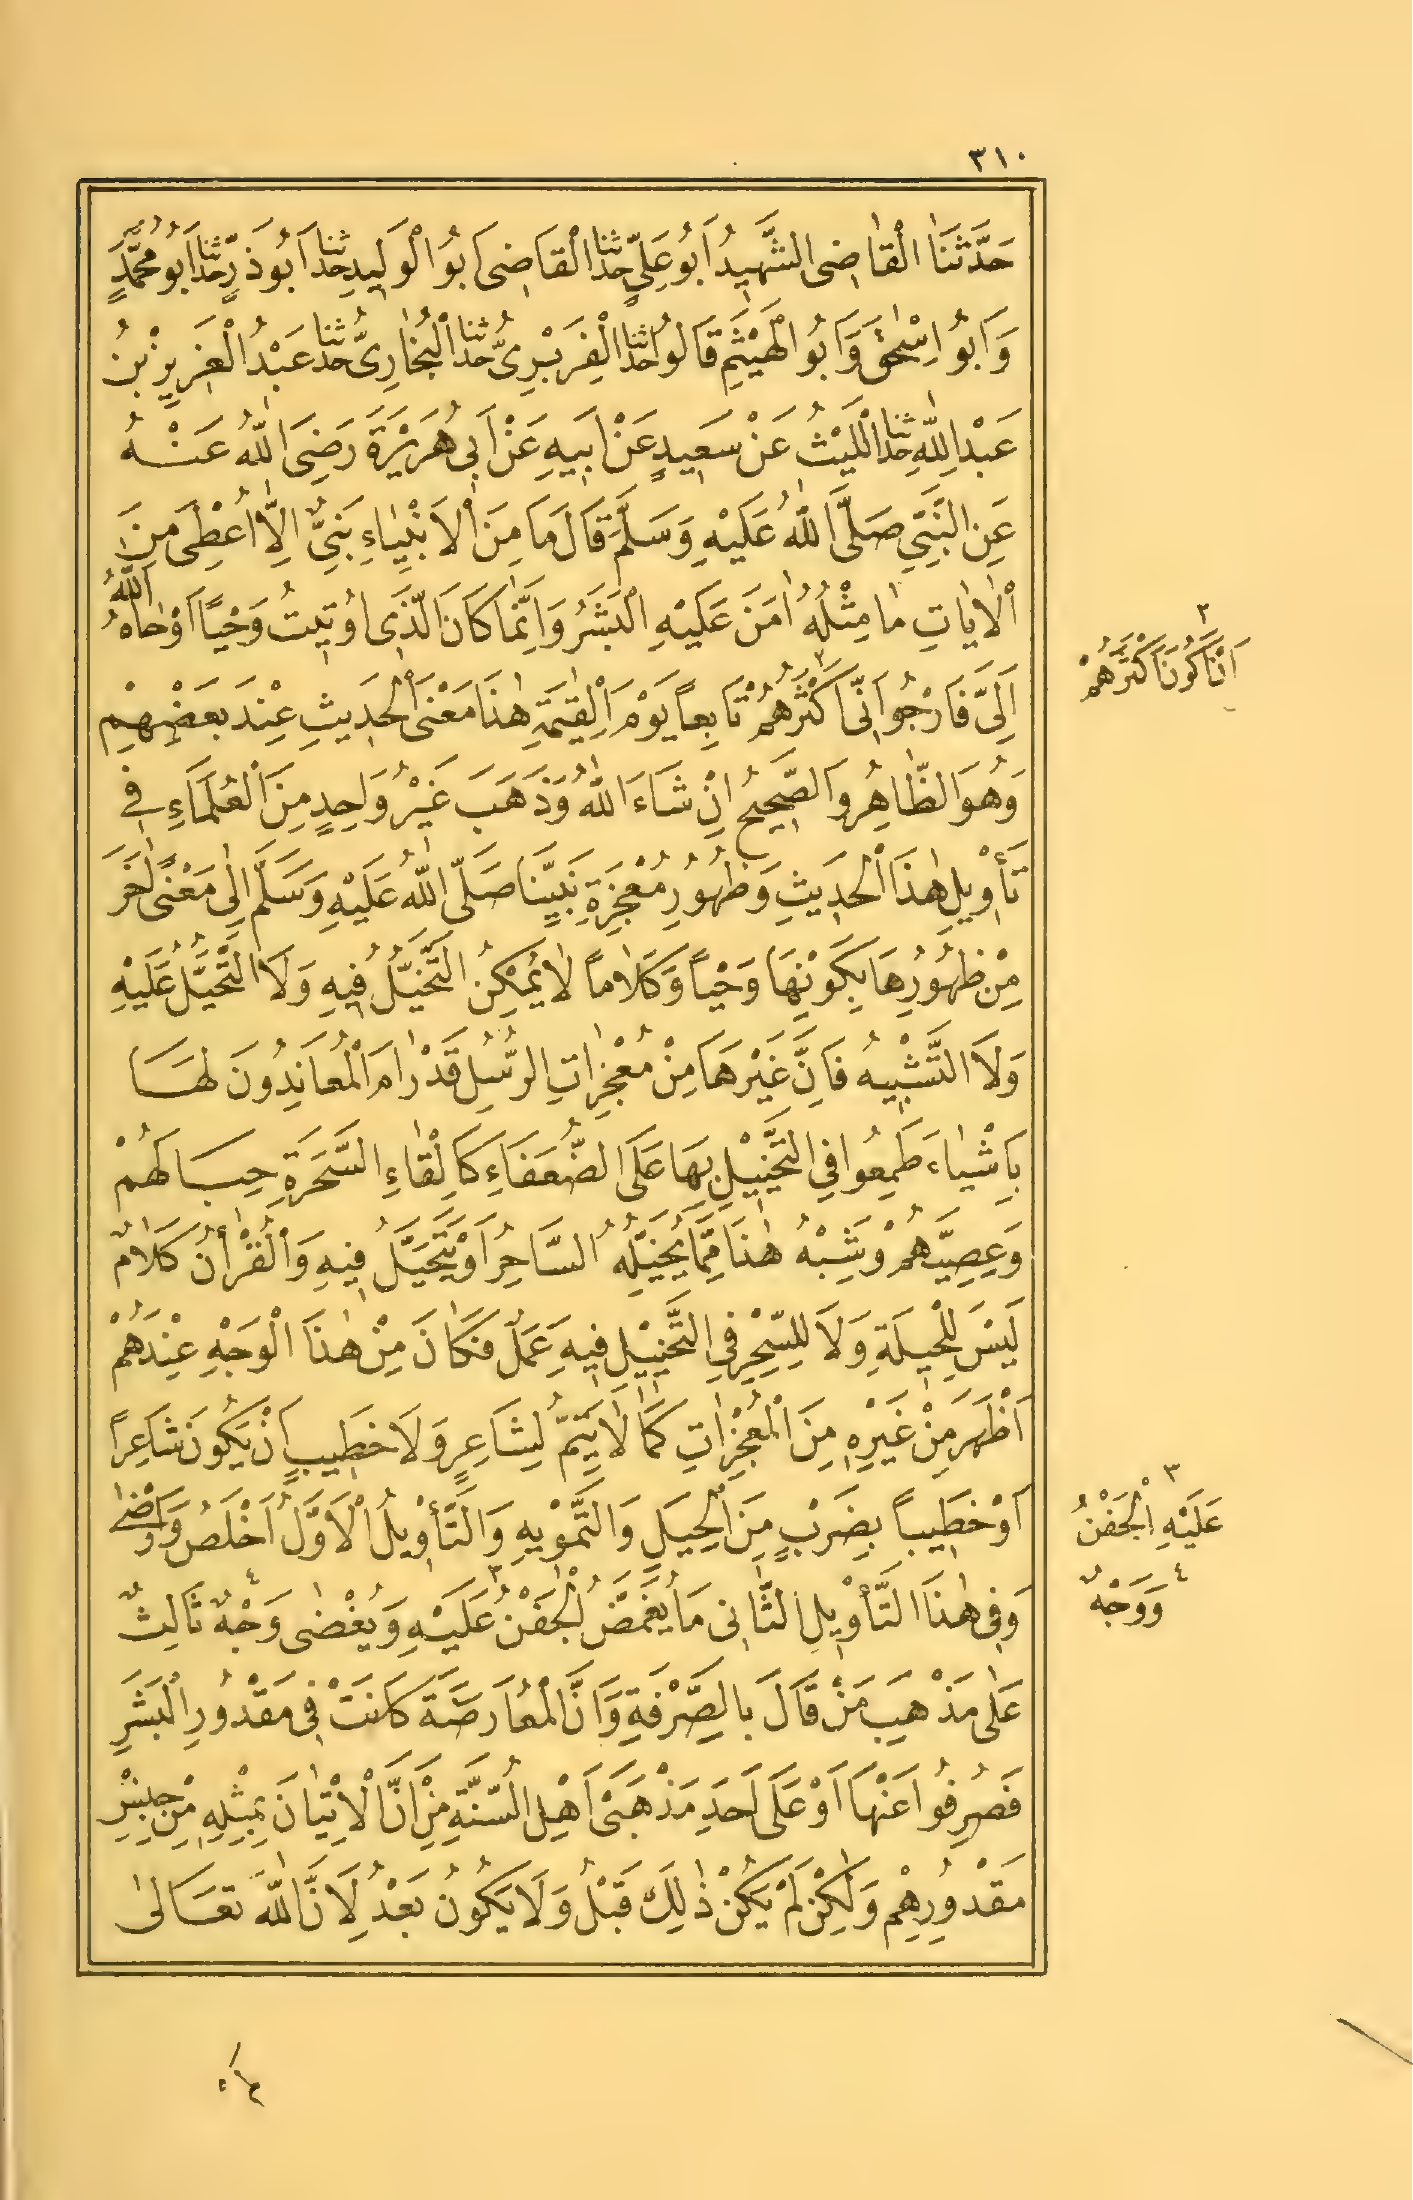 ٣١٠
حَدَّثَنَا الْقَاضِى الشَّهِيدُ اَبُو عَلِيٍّ حدثنا الْقَاضِى اَبُو الْوَلِيدِ حدثنا اَبُو ذَرٍّ حدثنا اَبُو مُحَمَّدٍ
وَاَبُو اِسْحٰقَ وَاَبُو الْهَيْثَمِ قَالُوا حدثنا الْفِرَبْرِىُّ حدثنا الْبُخَارِىُّ حدثنا عَبْدُ الْعَزِيزِ بْنُ
عَبْدِ اللّٰهِ حدثنا اللَّيْثُ عَنْ سَعِيدٍ عَنْ اَبِيهِ عَنْ اَبِى هُرَيْرَةَ رَضِىَ اللّٰهُ عَنْهُ
عَنِ النَّبِيِّ صَلَّى اللّٰهُ عَلَيْهِ وَسَلَّمَ قَالَ مَا مِنَ الْاَنْبِيَاءِ نَبِىٌّ اِلَّا اُعْطِىَ مِنَ
الْاٰيَاتِ مَا مِثْلُهُ اٰمَنَ عَلَيْهِ الْبَشَرُ وَاِنَّمَا كَانَ الَّذِى اُوتِيتُ وَحْيًا اَوْحَاهُ اللّٰهُ
اِلَىَّ فَاَرْجُوا اَنِّى اَكْثَرُهُمْ ٢ تَابِعاً يَوْمَ الْقِيٰمَةِ هٰذَا مَعْنَى الْحَدِيثِ عِنْدَ بَعْضِهِمْ
وَهُوَ الظَّاهِرُ وَالصَّحِيحُ اِنْ شَاءَ اللّٰهُ وَذَهَبَ غَيْرُ وَاحِدٍ مِنَ الْعُلَمَاءِ فِى
تَأْوِيلِ هٰذَا الْحَدِيثِ وَظُهُورِ مُعْجِزَةِ نَبِيِّنَا صَلَّى اللّٰهُ عَلَيْهِ وَسَلَّمَ اِلٰى مَعْنًى اٰخَرَ
مِنْ ظُهُورِهَا بِكَوْنِهَا وَحْياً وَكَلَاماً لَا يُمْكِنُ التَّخَيُّلُ فِيهِ وَلَا التَّحَيُّلُ عَلَيْهِ
وَلَا التَّشْبِيهُ فَاِنَّ غَيْرَهَا مِنْ مُعْجِزَاتِ الرُّسُلِ قَدْ رَامَ الْمُعَانِدُونَ لَهَا
بِاَشْيَاءَ طَمِعُوا فِى التَّخْيِيلِ بِهَا عَلَى الضُّعَفَاءِ كَاِلْقَاءِ السَّحَرَةِ حِبَالَهُمْ
وَعِصِيَّهُمْ وَشِبْهُ هٰذَا مِمَّا يُخَيِّلُهُ السَّاحِرُ اَوْ يَتَحَيَّلُ فِيهِ وَالْقُرْاٰنُ كَلَامٌ
لَيْسَ لِلْحِيلَةِ وَلَا لِلسِّحْرِ فِى التَّخْيِيلِ فِيهِ عَمَلٌ فَكَانَ مِنْ هٰذَا الْوَجْهِ عِنْدَهُمْ
اَظْهَرَ مِنْ غَيْرِهِ مِنَ الْمُعْجِزَاتِ كَمَا لَا يَتِمُّ لِشَاعِرٍ وَلَا خَطِيبٍ اَنْ يَكُونَ شَاعِراً
اَوْ خَطِيباً بِضَرْبٍ مِنَ الْحِيَلِ وَالتَّمْوِيهِ وَالتَّأْوِيلُ الْاَوَّلُ اَخْلَصُ وَاَرْضٰى
وَفِى هٰذَا التَّأْوِيلِ الثَّانِى مَا يُغَمَّضُ الْجَفْنُ ٣ عَلَيْهِ وَيُغْضٰى وَجْهٌ ٤ ثَالِثٌ
عَلٰى مَذْهَبِ مَنْ قَالَ بِالصَّرْفَةِ وَاَنَّ الْمُعَارَضَةَ كَانَتْ فِى مَقْدُورِ الْبَشَرِ
فَصُرِفُوا عَنْهَا اَوْ عَلَى اَحَدِ مَذْهَبَىْ اَهْلِ السُّنَّةِ مِنْ اَنَّ الْاِتْيَانَ بِمِثْلِهِ مِنْ جِنْسِ
مَقْدُورِهِمْ وَلٰكِنْ لَمْ يَكُنْ ذٰلِكَ قَبْلُ وَلَا يَكُونُ بَعْدُ لِاَنَّ اللّٰهَ تَعَالٰى
٢
اَنْ اَكُونَ اَكْثَرَهُمْ
٣
عَلَيْهِ الْجَفْنُ
٤
وَوَجْهٌ